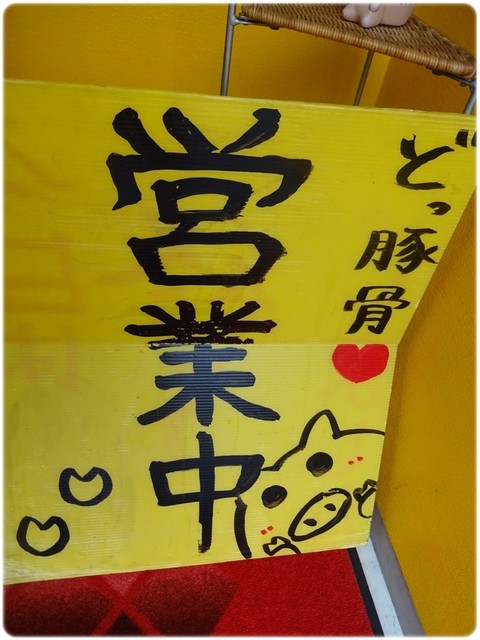 どっ豚骨
営業中